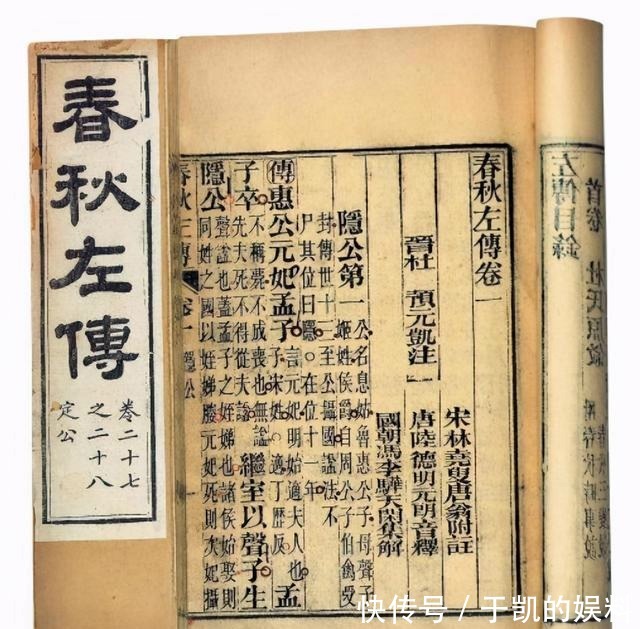 春秋左傳
卷二十七
之二十八
定公
春秋左傳卷一
晉杜 預元凱注
宋林堯叟唐翁附註
唐陸德明元朗音釋
國朝馮李驊天閑集解
隱公第一 公名息姑魯惠公子母聲子
姬姓侯爵自周公子伯禽受
封傳世十三至公攝國諡法不
尸其位曰隱在位十一年
傳惠公元妃孟子 言元妃明始適夫人也
子宋姓適丁歷反 孟
子卒 不稱薨不成喪也無諡
先夫死不得從夫諡 繼室以聲子生
隱公 聲諡也蓋孟子之姪娣也諸侯始娶則
同姓之國以姪娣媵元妃死則次妃攝
春秋左傳 卷一 隱公
左傳目錄
首卷 杜氏原敘
快传号 / 于凯的娱料